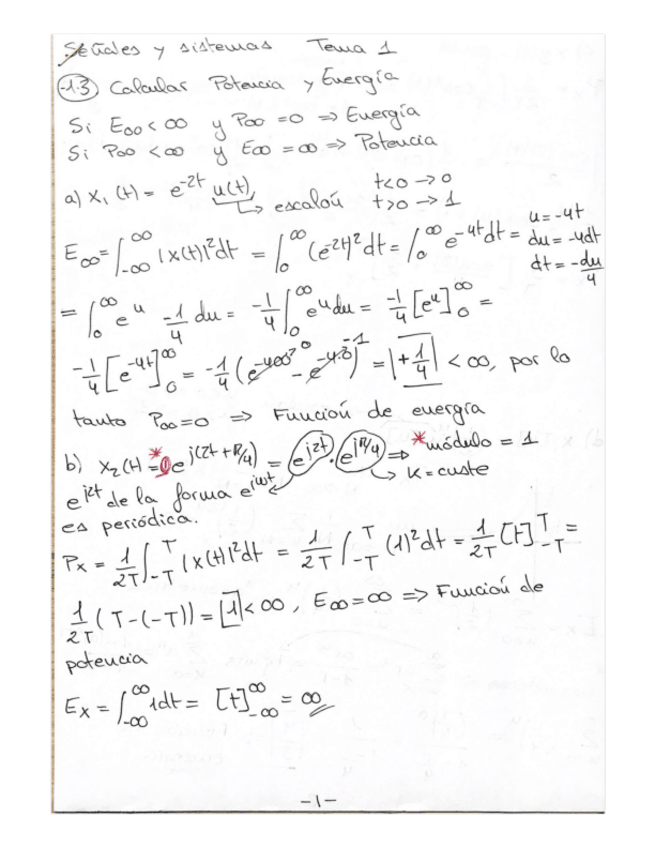 Señales y sistemas Tema 1
-1.3 Calcular Potencia y Energía
Si E∞ < ∞ y P∞ = 0 ⇒ Energía
Si P∞ < ∞ y E∞ = ∞ ⇒ Potencia
a) x₁(t) = e^-2t u(t) → escalón t<0 → 0
t>0 → 1
E∞ = ∫_-∞^∞ |x(t)|² dt = ∫_0^∞ (e^-2t)² dt = ∫_0^∞ e^-4t dt = u = -4t
du = -4dt
dt = -du/4
= ∫_0^∞ e^u -1/4 du = -1/4 ∫_0^∞ e^u du = -1/4 [e^u]_0^∞ =
-1/4 [e^-4t]_0^∞ = -1/4 (e^-4∞ 0 - e^-4·0 1) = |+1/4| < ∞, por lo
tanto P∞ = 0 ⇒ Función de energía
b) x₂(t) = * e^j(2t + π/4) = e^j2t · e^jπ/4 ⇒ * módulo = 1
→ K = cnste
e^j2t de la forma e^jωt
es periódica.
Px = 1/2T ∫_-T^T |x(t)|² dt = 1/2T ∫_-T^T (1)² dt = 1/2T [t]_-T^T =
1/2T (T-(-T)) = |1| < ∞, E∞ = ∞ ⇒ Función de
potencia
Ex = ∫_-∞^∞ 1dt = [t]_-∞^∞ = ∞
-1-